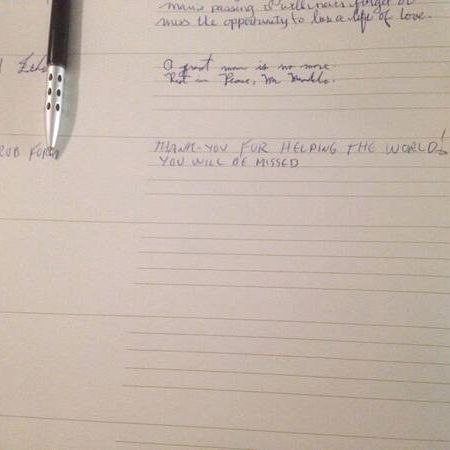 man's passing I will never forget or
miss the opportunity to live a life of love.
A great man is no more
Rest in Peace, Mr Mandela.
ROB FORD
THANK-YOU FOR HELPING THE WORLD!
YOU WILL BE MISSED